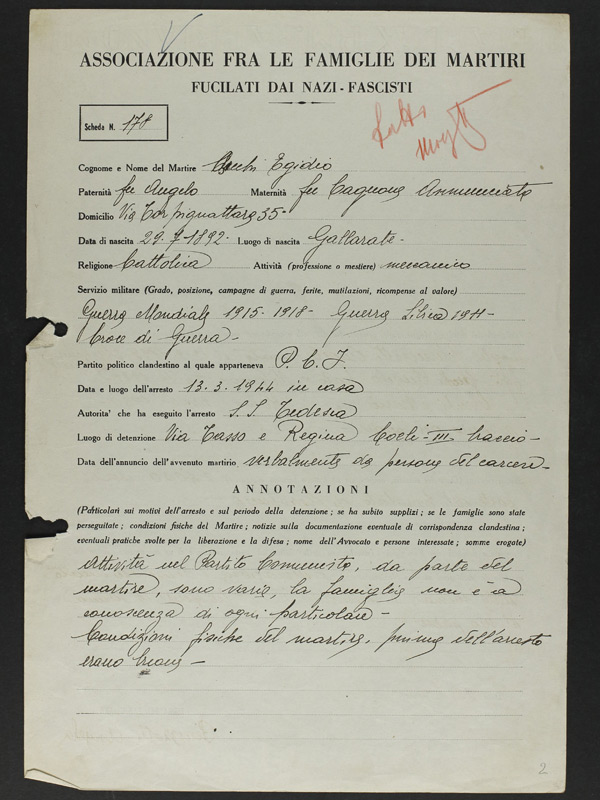 ASSOCIAZIONE FRA LE FAMIGLIE DEI MARTIRI
FUCILATI DAI NAZI-FASCISTI
Scheda N. 178
Cognome e Nome del Martire Checchi Egidio
Paternità fu Angelo Maternità fu Cagnoni Annunciata
Domicilio Via Torpignattara 35-
Data di nascita 29.7-1892- Luogo di nascita Gallarate-
Religione Cattolica Attività (professione o mestiere) meccanico
Servizio militare (Grado, posizione, campagne di guerra, ferite, mutilazioni, ricompense al valore)
Guerra Mondiale 1915-1918- Guerra Libica 1911-
Croce di Guerra-
Partito politico clandestino al quale apparteneva P.C.I.
Data e luogo dell'arresto 13.3.1944 in casa
Autorita' che ha eseguito l'arresto S.S. Tedesca
Luogo di detenzione Via Tasso e Regina Coeli-III braccio-
Data dell'annuncio dell'avvenuto martirio verbalmente da persona del carcere-
ANNOTAZIONI
(Particolari sui motivi dell'arresto e sul periodo della detenzione; se ha subito supplizi; se le famiglie sono state
perseguitate; condizioni fisiche del Martire; notizie sulla documentazione eventuale di corrispondenza clandestina;
eventuali pratiche svolte per la liberazione e la difesa; nome dell'Avvocato e persone interessate; somme erogate)
Attività nel Partito Comunista, da parte del
martire, sono varie, la famiglia non è a
conoscenza di ogni particolare-
Condizioni fisiche del martire, prima dell'arresto
erano buone-
2